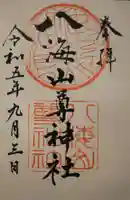 奉拝
八海山尊神社
令和五年九月三日